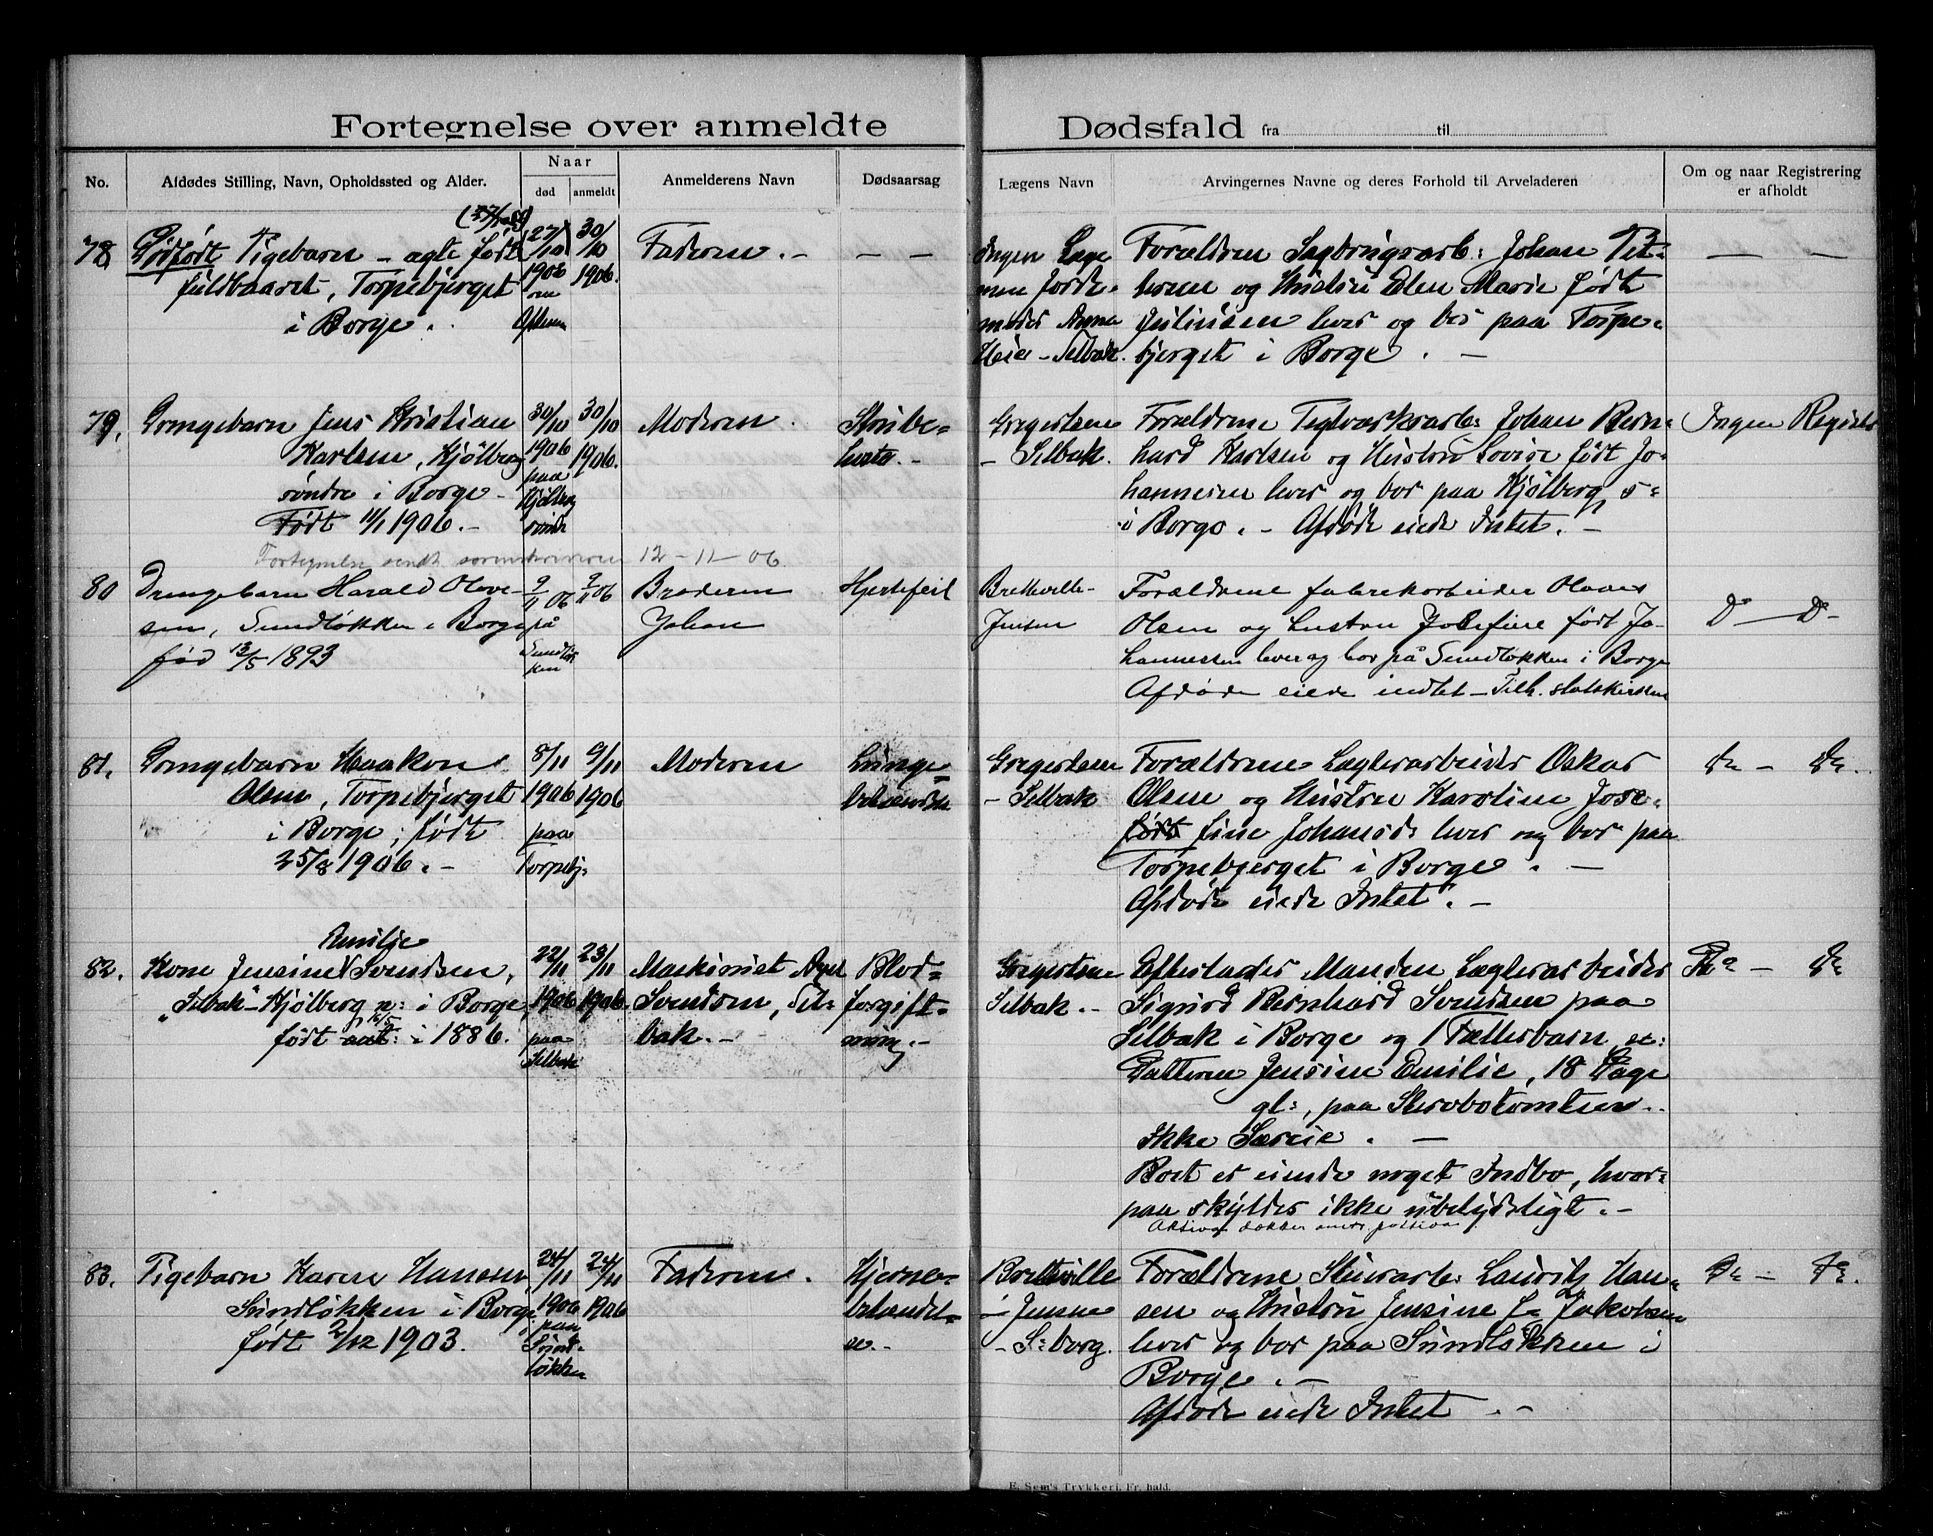 Fortegnelse over anmeldte Dødsfald fra til
No.
Afdødes Stilling, Navn, Opholdssted og Alder.
Naar
død
anmeldt
Anmelderens Navn
Dødsaarsag
Lægens Navn
Arvingernes Navne og deres Forhold til Arveladeren
Om og naar Registrering
er afholdt
78
Dødfødt Pigebarn – ægte født
fuldbaaret, Torpebjerget
i Borge.
27/10
1906
om
Aftenen
30/10
1906.
Faderen. –
– –
Ingen Læge
men Jorde-
moder Agna
Heie – Selbak.
Forældrene Sagbrugsarb: Johan Pet-
tersen og Hustru Elen Marie født
Juliussen lever og bor paa Torpe-
bjerget i Borge. –
— —
79.
Drengebarn Jens Kristian
Karlsen, Kjølberg
søndre i Borge –
Født 11/1 1906. –
30/10
1906
paa
Kjølberg
søndre
30/10
1906.
Moderen.
Strube-
hoste. –
Gregertsen
– Selbak.
Forældrene Teglværksarb: Johan Bern-
hard Karlsen og Hustru Lovise født Jo-
hannesen lever og bor paa Kjølberg s-
i Borge. – Afdøde eiede Intet. –
Ingen Registr
Fortegnelse sendt sorenskriveren 12-11-06
80
Drengebarn Harald Olove-
sen, Sundløkken i Borge
fød 13/5 1893
2/11 06
på
Sundløk
ken
2/11 06
Broderen
Johan
Hjertefeil
Bretteville-
Jensen
Forældrene fabrekarbeider Olaves
Olsen og hustru Josefine født Jo-
hannessen lever og bor på Sundløkken i Borge
Afdøde eiede indtet – Tilh. statskirken
Do — Do –
81.
Drengebarn Haakon
Olsen, Torpebjerget
i Borge; født
25/8 1906. –
8/11
1906
paa
Torpebj:
9/11
1906
Moderen
Lunge-
betændelse
Gregertsen
– Selbak
Forældrene Lagterarbeider Oskar
Olsen og Hustru Karoline Jose-
født fine Johansd: lever og bor paa
Torpebjerget i Borge. –
Afdøde eiede Intet. –
Do – Do.
82.
Emilie
Kone Jensine Svendsen,
"Selbak" – Kjølberg n: i Borge,
født 16/5 i 1886.
22/11
1906
paa
Selbak
23/11
1906
Maskinist Axel
Svendsen, Sel-
bak. –
Blod-
forgift-
ning. –
Gregertsen
Selbak. –
Efterlader Manden Lagterarbeider
Sigurd Bernhard Svendsen paa
Selbak i Borge og 1 Fællesbarn
Datteren Jensine Emilie, 18 Dage
gl:, paa
Ikke Særeie. –
Boet er eiende noget Indbo, hvor-
paa skyldes ikke ubetydeligt. –
Aktiva dækker passiva
Do – Do
83.
Pigebarn Karen Hansen,
Sundløkken i Borge
født 2/12 1903.
24/11
1906
paa
Sund-
løkken
24/11
1906
Faderen.
Hjerne-
betændel-
se. –
Bretteville
– Jensen
– S:borg.
Forældrene Stenarb: Lauritz Han-
sen og Hustru Jensine f. Jakobsen
lever og bor paa Sundløkken i
Borge. –
Afdøde eiede Intet. –
Do – Do.
E. Sem's Trykkeri, Fr.hald.